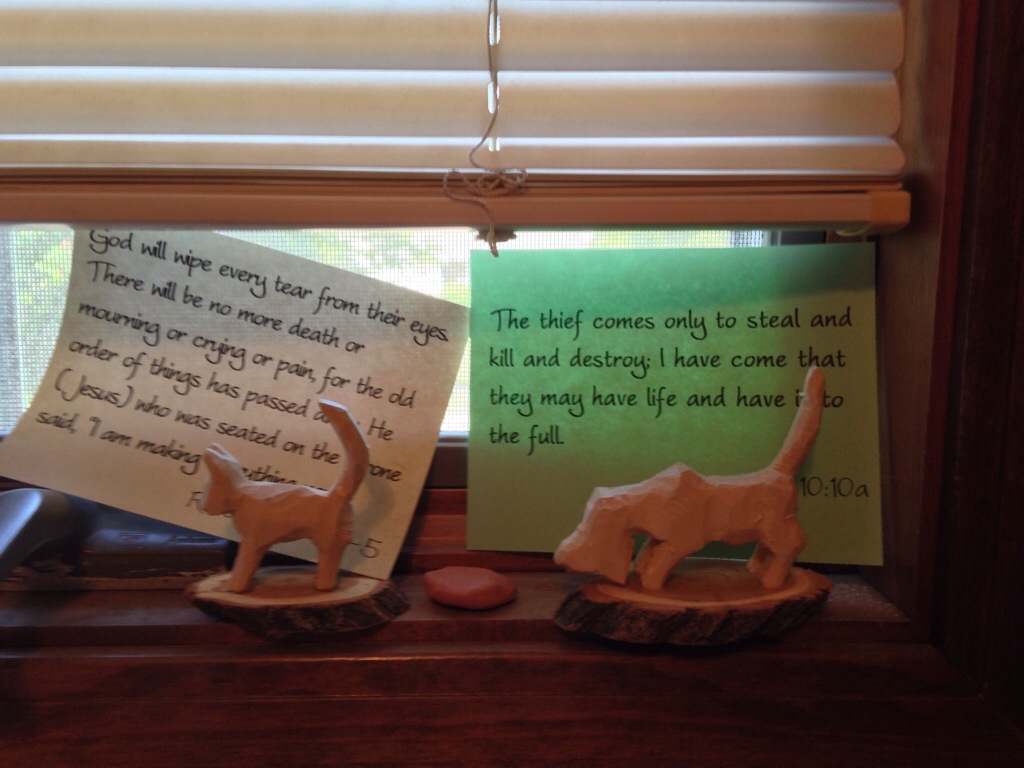 God will wipe every tear from their eyes.
There will be no more death or
mourning or crying or pain, for the old
order of things has passed He
(Jesus) who was seated on the
said, "I am making
5
The thief comes only to steal and
kill and destroy; I have come that
they may have life and have it to
the full.
10:10a